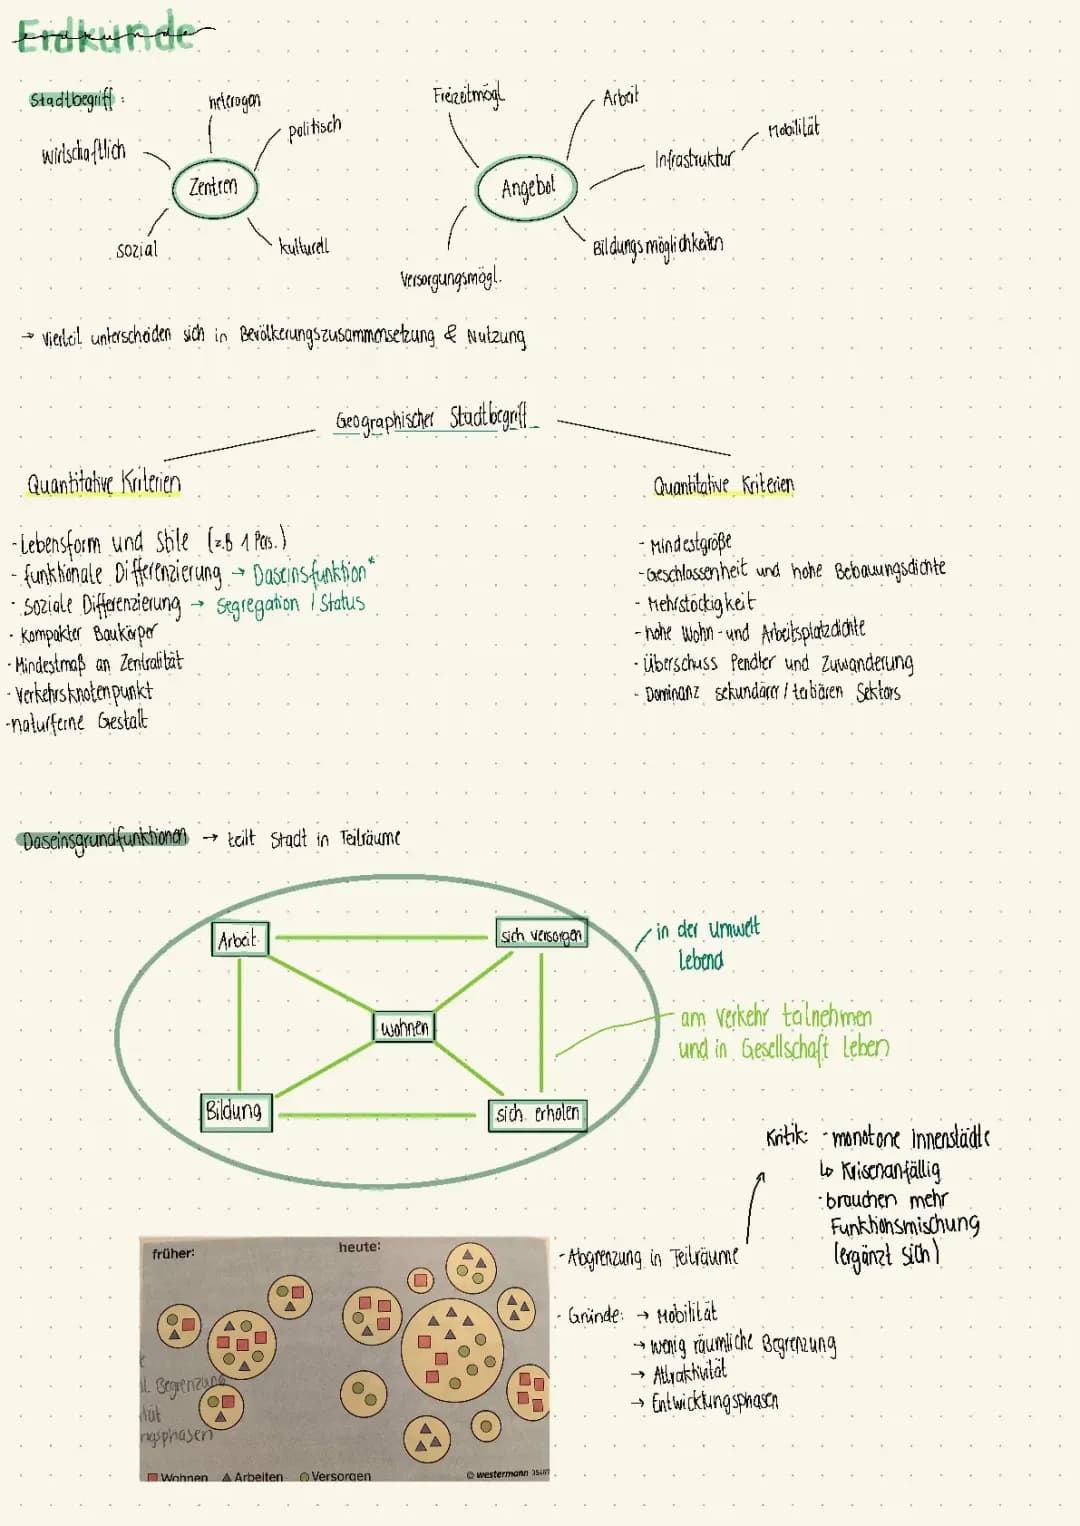 Erdkunde
Stadtbegriff:
heterogen
politisch
wirtschaftlich
Zentren
sozial
kulturell
Freizeitmögl.
Arbeit
Mobilität
Infrastruktur
Angebot
Bildungsmöglichkeiten
Versorgungsmögl.
→ Viertel unterscheiden sich in Bevölkerungszusammensetzung & Nutzung
Geographischer Stadtbegriff
Quantitative Kriterien
- Lebensform und Stile (z.B 1 Pers.)
- funktionale Differenzierung → Daseinsfunktion*
- Soziale Differenzierung → Segregation / Status
- Kompakter Baukörper
- Mindestmaß an Zentralität
- Verkehrsknotenpunkt
- naturferne Gestalt
Quantitative Kriterien
- Mindestgröße
- Geschlossenheit und hohe Bebauungsdichte
- Mehrstöckigkeit
- hohe Wohn- und Arbeitsplatzdichte
- Überschuss Pendler und Zuwanderung
- Dominanz sekundärer / tertiären Sektors
Daseinsgrundfunktionen → teilt Stadt in Teilräume
Arbeit
sich versorgen
wohnen
Bildung
sich erholen
in der Umwelt
lebend
am Verkehr teilnehmen
und in Gesellschaft leben
Kritik: - monotone Innenstädte
↳ Krisenanfällig
- brauchen mehr
Funktionsmischung
(ergänzt sich)
- Abgrenzung in Teilräume
- Gründe: → Mobilität
→ wenig räumliche Begrenzung
→ Attraktivität
→ Entwicklungsphasen
früher:
heute:
l. Begrenzung
tät
ngsphasen
Wohnen Arbeiten Versorgen
© westermann